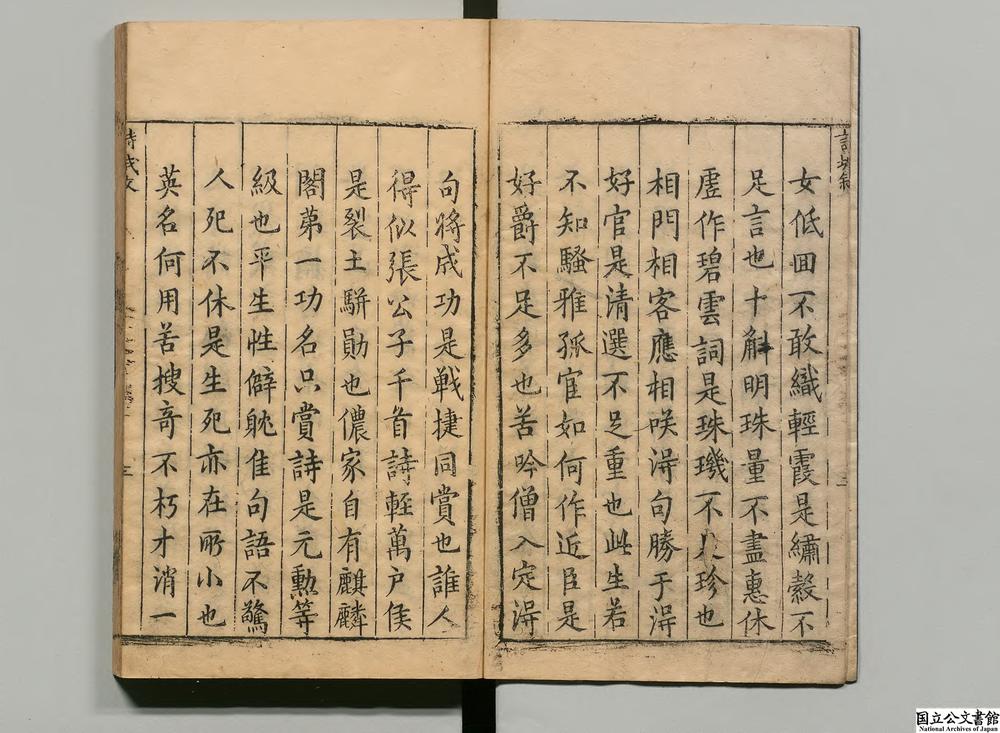 女低囬不敢織輕霞是繡縠不
足言也十斛明珠量不盡惠休
虛作碧雲詞是珠璣不足珍也
相門相客應相咲淂句勝于淂
好官是清選不足重也此生若
不知騷雅孤宦如何作近臣是
好爵不足多也苦吟僧入定淂
句將成功是戰捷同賞也誰人
得似張公子千首詩輕萬户侯
是裂土騈勛也儂家自有麒麟
閣第一功名只賞詩是元勳等
級也平生性僻躭隹句語不驚
人死不休是生死亦在所小也
英名何用苦搜奇不朽才消一
三
三
国立公文書館
National Archives of Japan